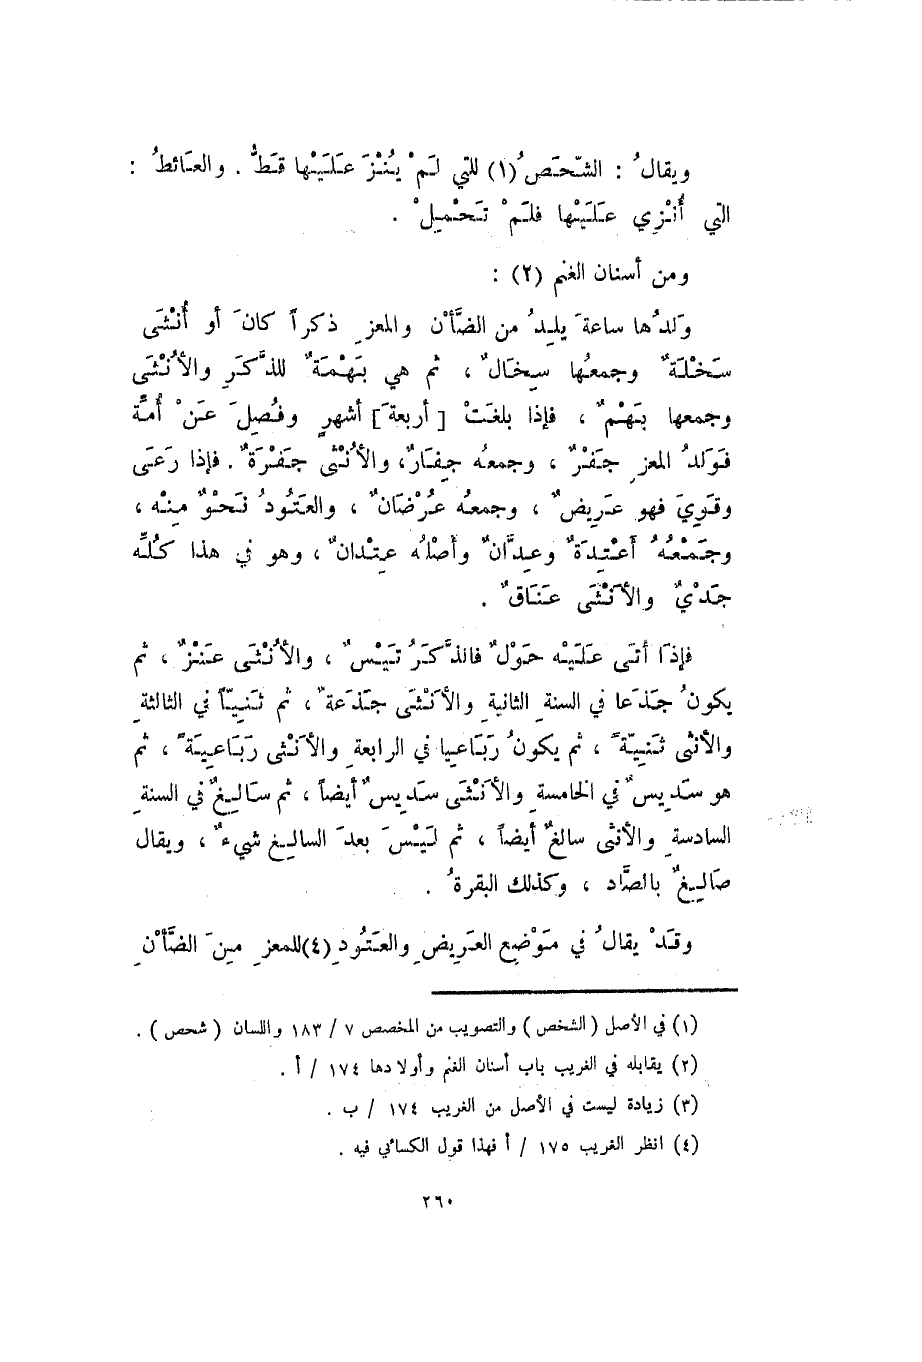 ويقالُ : الشَّحَصُ(١) للتي لَمْ يُنْزَ عَلَيْها قَطُّ . والعَائطُ :
التي أُنْزِي عَلَيْها فلَمْ تَحْمِلْ .
ومن أسنان الغنم (٢) :
وَلدُها ساعةَ يلِدُ من الضَّأْنِ والمعزِ ذكراً كانَ أو أُنْثَى
سَخْلَةٌ وجمعُها سِخَالٌ ، ثم هي بَهْمَةٌ للذَّكَرِ والأُنْثَى
وجمعها بَهْمٌ ، فإذا بلغَتْ [ أربعةَ ] أشهرٍ وفُصِلَ عَنْ أُمِّهِ
فَوَلدُ المعزِ جَفْرٌ ، وجمعُه جِفَارٌ، والأُنْثى جَفْرَةٌ . فإذا رَعَى
وقَوِيَ فهو عَرِيضٌ ، وجمعُه عُرْضَانٌ ، والعَتُودُ نَحْوٌ مِنْه ،
وجَمْعُهُ أَعْتِدَةٌ وعِدَّانٌ وأصْلُه عِتْدان ٌ ، وهو في هذا كُلِّه
جَدْيٌ والأُنْثَى عَنَاقٌ .
فإذَا أتَى عَلَيْه حَوْلٌ فالذَّكَرُ تَيْسٌ ، والأُنْثَى عَنْزٌ ، ثم
يكونُ جَذَعا في السنةِ الثانيةِ والأُنْثَى جَذَعةٌ ، ثم ثَنِيّاً في الثالثةِ
والأنثى ثَنِيّةً ، ثم يكونُ رَبَاعيا في الرابعةِ والأُنْثى رَبَاعِيَةً ، ثم
هو سَدِيسٌ في الخامسةِ والأُنْثَى سَدِيسٌ أيضاً ، ثم سَالِغٌ في السنةِ
السادسةِ والأنثى سالغٌ أيضاً ، ثم لَيْسَ بعدَ السالِغِ شيءٌ ، ويقال
صَالِغٌ بالصَّاد ، وكذلك البقرةُ .
وقَدْ يقالُ في مَوْضِعِ العَرِيضِ والعَتُودِ(٤)للمعزِ مِنَ الضَّأْنِ
(١) في الأصل ( الشخص ) والتصويب من المخصص ٧ / ١٨٣ واللسان ( شحص ) .
(٢) يقابله في الغريب باب أسنان الغنم وأولادها ١٧٤ / أ .
(٣) زيادة ليست في الأصل من الغريب ١٧٤ / ب .
(٤) انظر الغريب ١٧٥ / أ فهذا قول الكسائي فيه .
٢٦٠